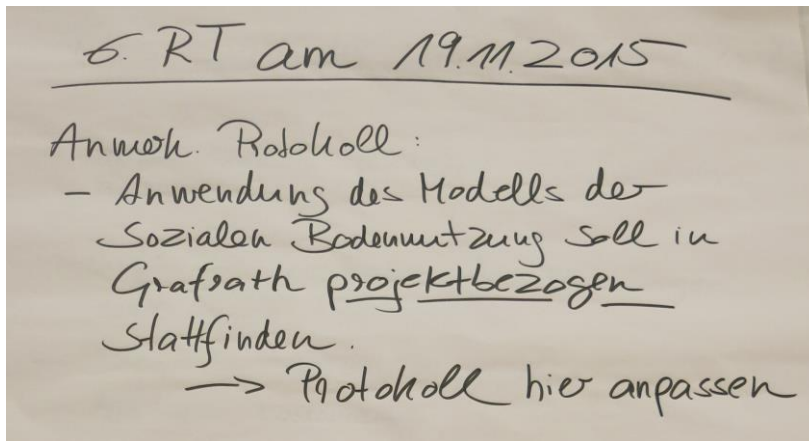 6. RT am 19.11.2015
Anmerk. Protokoll:
- Anwendung des Modells der
Sozialen Bodennutzung soll in
Grafrath projektbezogen
stattfinden.
→ Protokoll hier anpassen